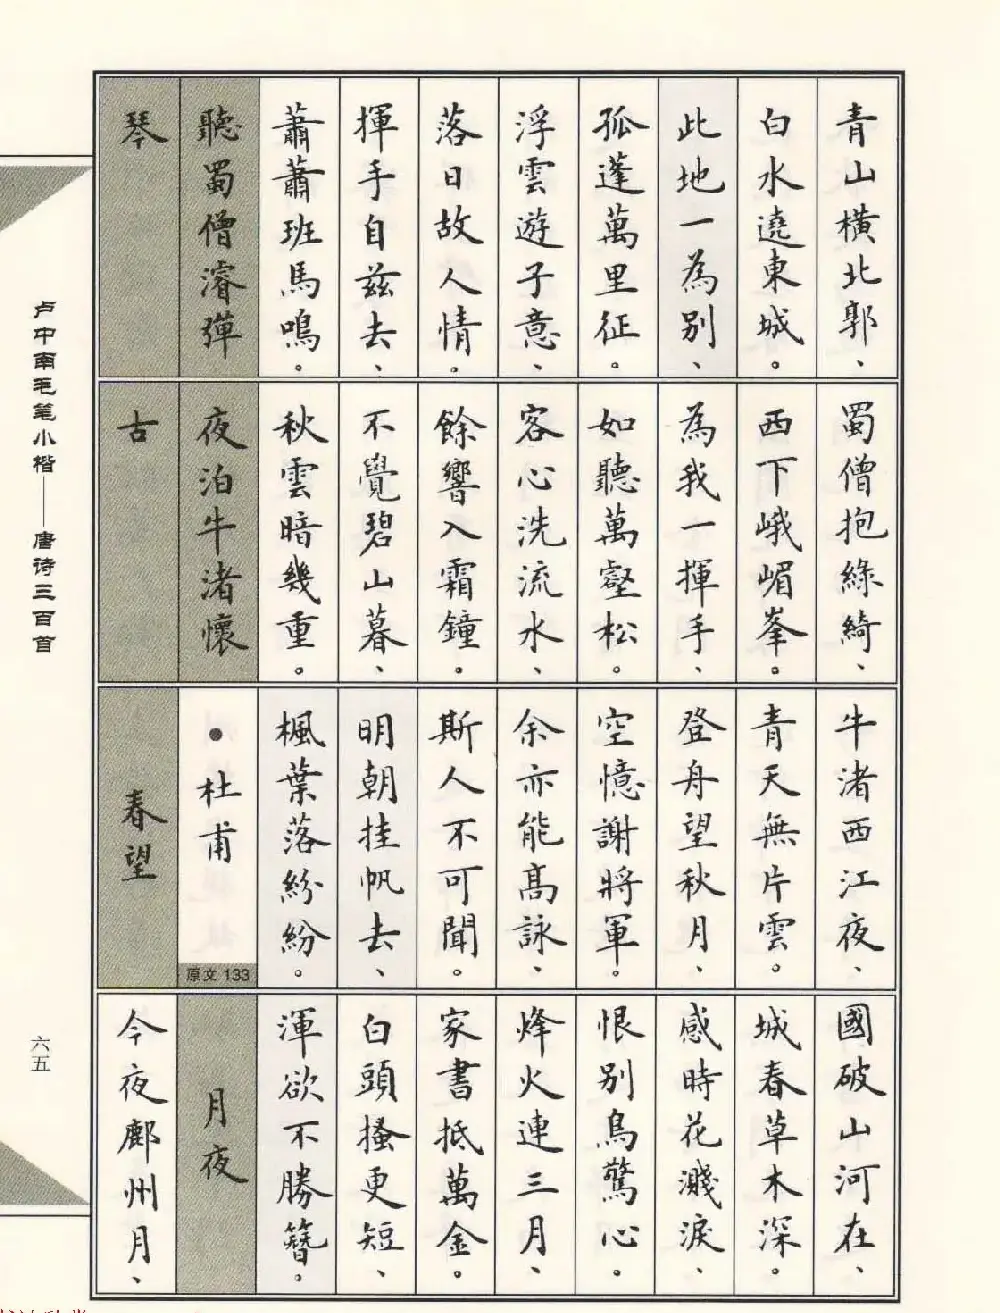 青山橫北郭、
白水遶東城。
此地一為別、
孤蓬萬里征。
浮雲遊子意、
落日故人情。
揮手自茲去、
蕭蕭班馬鳴。
聽蜀僧濬彈
琴
蜀僧抱綠綺、
西下峨嵋峯。
為我一揮手、
如聽萬壑松。
客心洗流水、
餘響入霜鐘。
不覺碧山暮、
秋雲暗幾重。
夜泊牛渚懷
古
牛渚西江夜、
青天無片雲。
登舟望秋月、
空憶謝將軍。
余亦能髙詠、
斯人不可聞。
明朝挂帆去、
楓葉落紛紛。
•杜甫
原文 133
春望
國破山河在、
城春草木深。
感時花濺淚、
恨別鳥驚心。
烽火連三月、
家書抵萬金。
白頭搔更短、
渾欲不勝簪。
月夜
今夜鄜州月、
卢中南毛笔小楷——唐诗三百首
六五